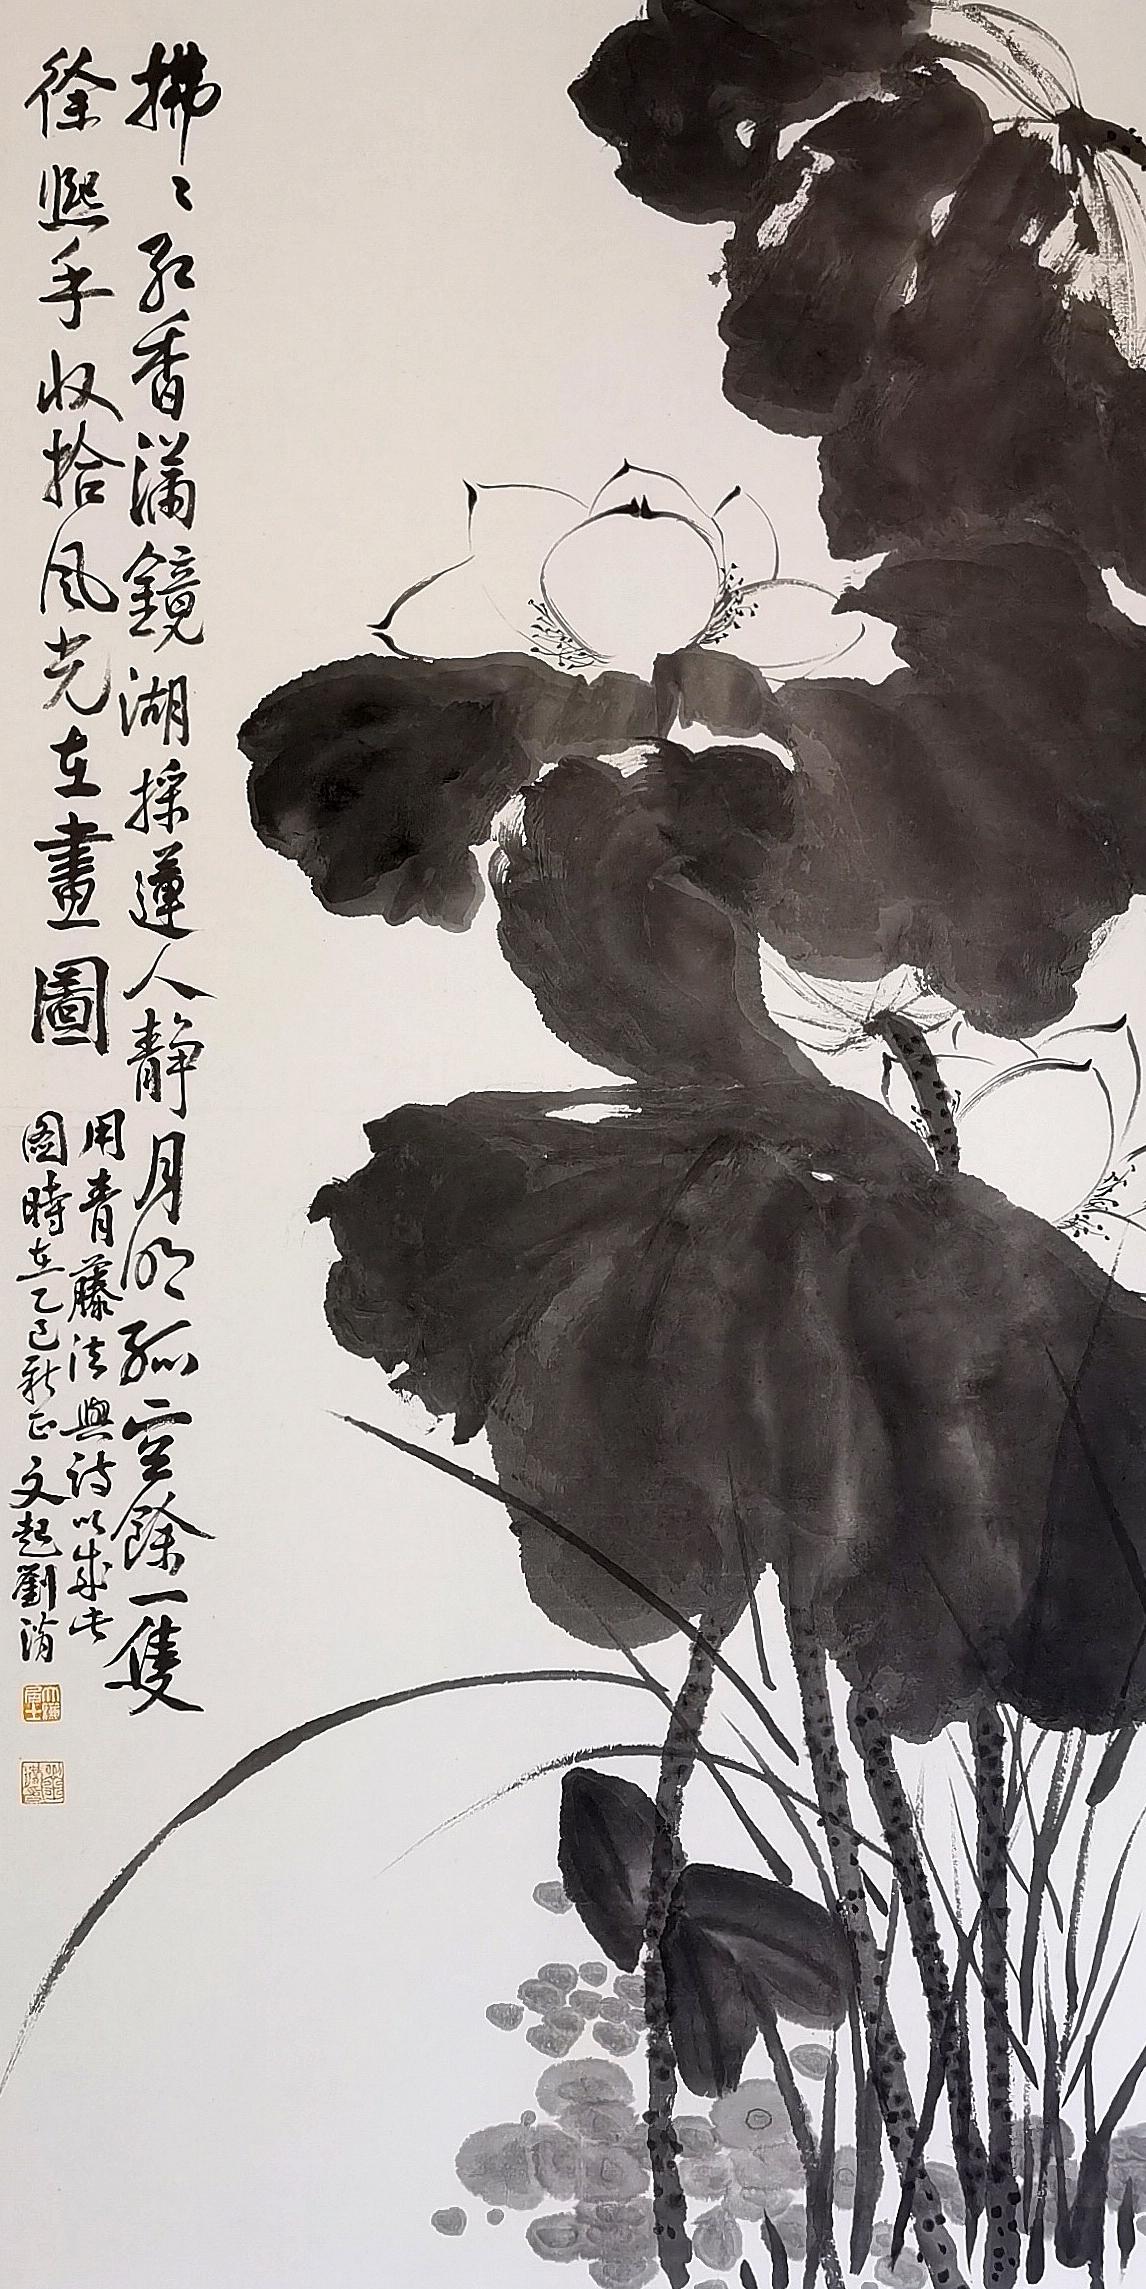 拂〻紅香滿鏡湖採蓮人靜月明孤空餘一隻
徐熙手收拾風光在畫圖
用青藤法與詩以成此
图時在乙巳新正文起劉